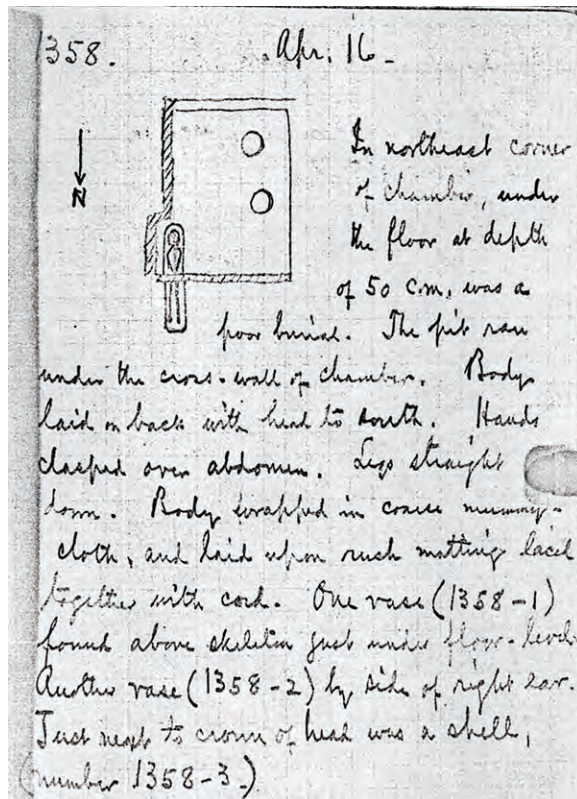 1358. Apr. 16-
N
In northeast corner
of chamber, under
the floor at depth
of 50 c.m. was a
poor burial. The pit ran
under the cross-wall of chamber. Body
laid on back with head to south. Hands
clasped over abdomen. Legs straight
down. Body wrapped in coarse mummy-
cloth, and laid upon rush matting laced
together with cord. One vase (1358-1)
found above skeleton just under floor-level.
Another vase (1358-2) by side of right ear.
Just next to crown of head was a shell,
(number 1358-3.)